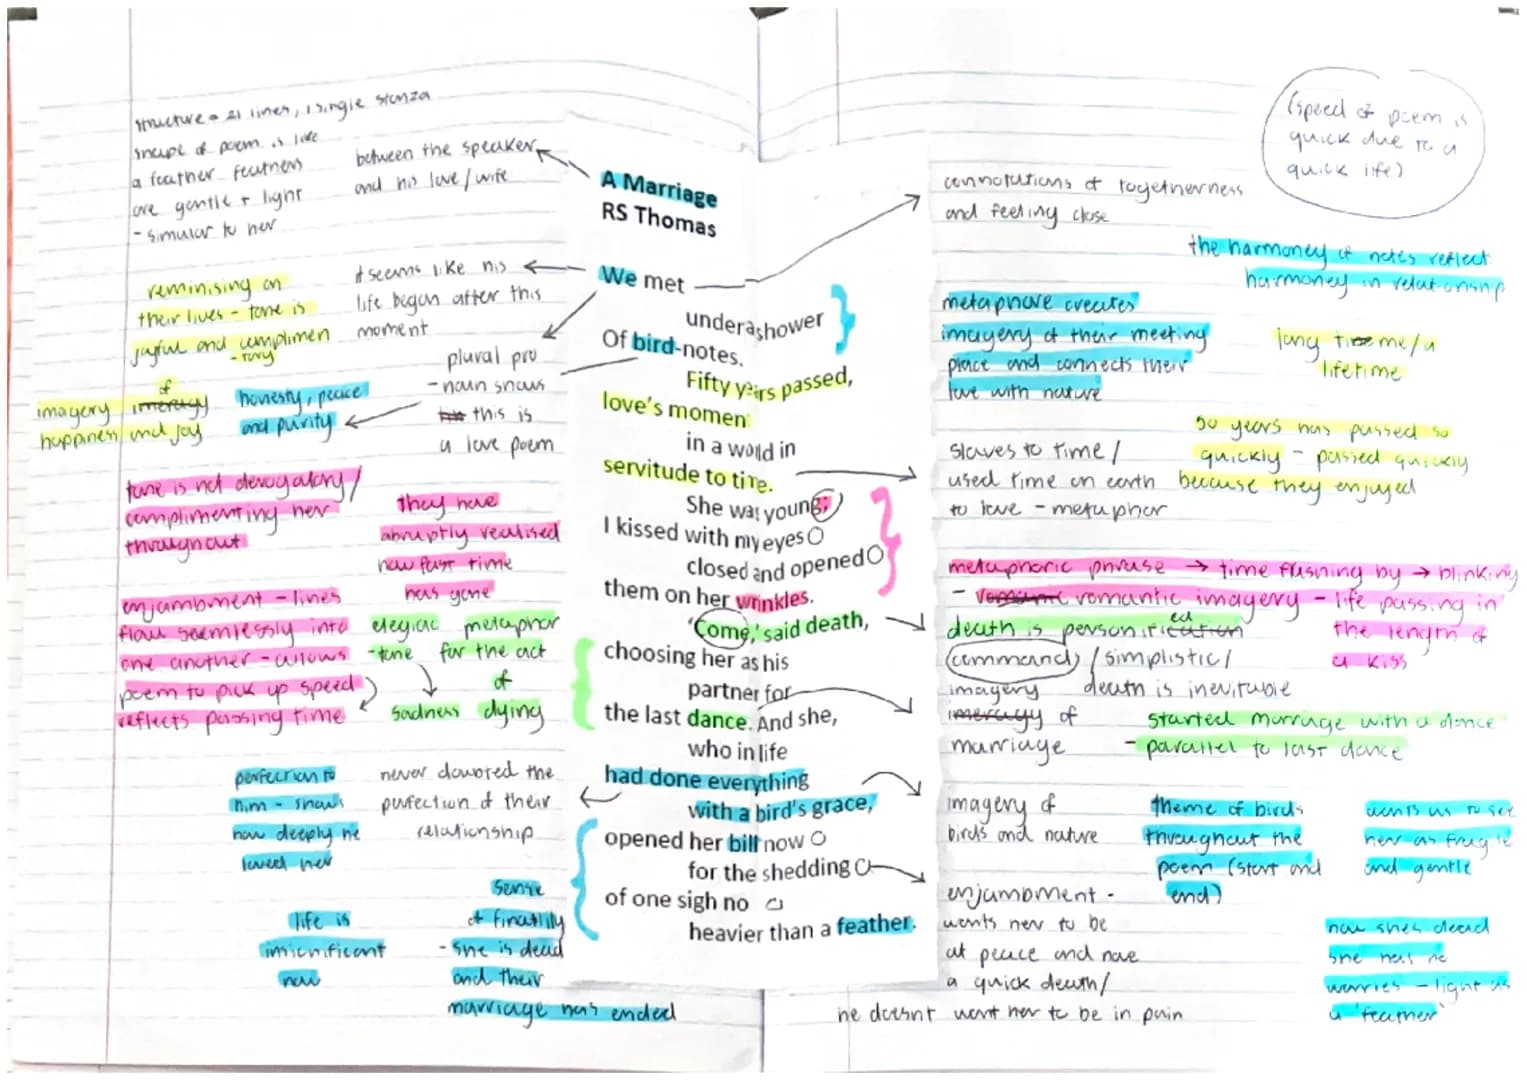 structure = 21 lines, 1 single stanza
shape of poem is like
a feather feathers
are gentle + light
- simular to her
between the speaker
and his love/wife
A Marriage
RS Thomas
We met
under a shower
Of bird-notes.
Fifty years passed,
love's momen
in a world in
servitude to time.
She was young;
I kissed with my eyes
closed and opened
them on her wrinkles.
'Come,' said death,
choosing her as his
partner for
the last dance. And she,
who in life
had done everything
with a bird's grace,
opened her bill now
for the shedding
of one sigh no
heavier than a feather.
reminising on
their lives - tone is
joyful and complimen
-tory
it seems like his
life began after this
moment
plural pro
- noun shows
this is
a love poem
of
imagery imeragy
happiness and joy
honesty, peace
and purity
tone is not derogatory/
complimenting her
throughout
they have
abruptly realised
how fast time
has gone
enjambment - lines
flow seemlessly into
one another - allows
poem to pick up speed
reflects passing time
elegiac metaphor
-tone for the act
of
sadness dying
perfection to
him - shows
how deeply he
loved her
never doubted the
perfection of their
relationship
sense
of finatlily
- she is dead
and their
marriage has ended
life is
insignificant
now
(speed of poem is
quick due to a
quick life)
connotations of togetherness
and feeling close
the harmoney of notes reflect
harmoney in relationship
metaphore creates
imagery of their meeting
place and connects their
love with nature
long time/a
lifetime
slaves to time /
used time on earth
to love - metaphor
50 years has passed so
quickly - passed quickly
because they enjoyed
metaphoric phrase → time flashing by → blinking
- romantic imagery - life passing in
the length of
a kiss
death is personified
(command) / simplistic/
death is inevitable
imagery
imeragy of
marriage
started marriage with a dance
- parallel to last dance
imagery of
birds and nature
theme of birds
throughout the
poem (start and
end)
wants us to see
her as fragile
and gentle
enjambment -
wants her to be
at peace and have
a quick death/
he doesnt want her to be in pain
now shes dead
she has no
worries - light as
a 'feather'